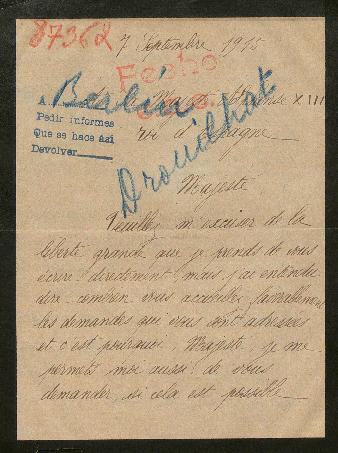 87362
7 Septembre 1915
Fecho
Berlin
A Sa Majesté Alphonse XIII
roi d'Espagne
A
Pedir informes
Que se hace asi
Devolver
Drouilhat
Majesté
Veuillez m'excuser de la
liberté grande que je prends de vous
écrire directement, mais j'ai entendu
dire combien vous accueillez favorablement
les demandes que vous sont adressées
et c'est pourquoi, Majesté, je me
permets moi aussi de vous
demander, si cela est possible